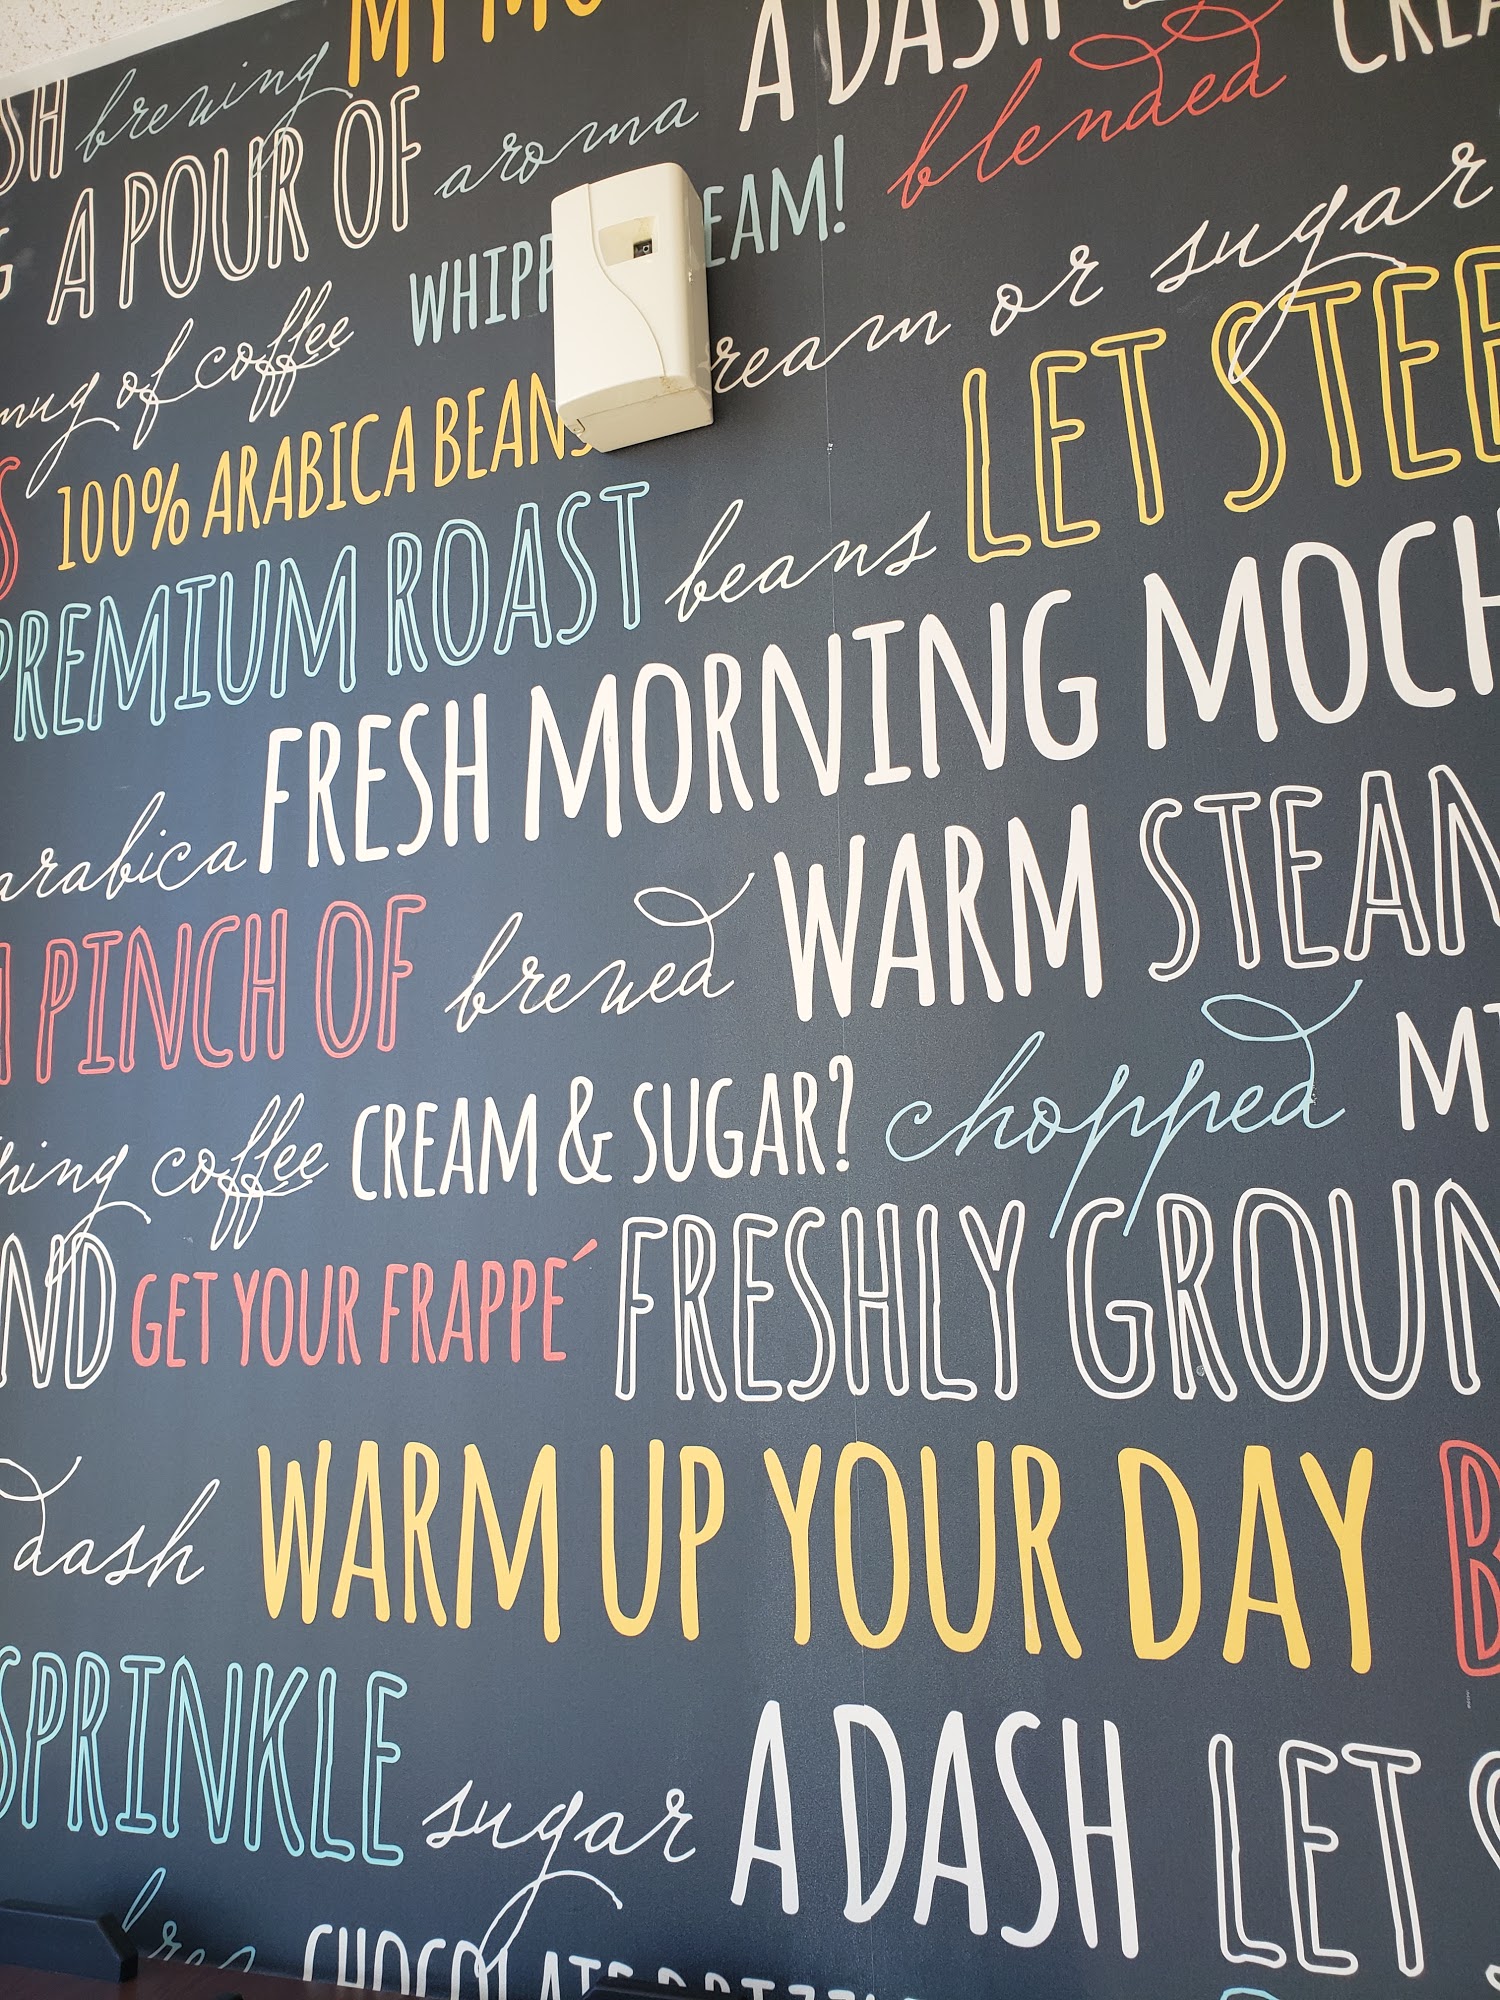 SH brewing MY MO A DASH CREA
G A POUR OF aroma blended
mug of coffee WHIPP EAM! ream or sugar
S 100% ARABICA BEANS LET STEE
PREMIUM ROAST beans
arabica FRESH MORNING MOCH
A PINCH OF brewed WARM STEAM
hing coffee CREAM & SUGAR? chopped
ND GET YOUR FRAPPÉ FRESHLY GROUN
dash WARM UP YOUR DAY B
SPRINKLE sugar A DASH LET S
CHOCOLATE DRIZZLE